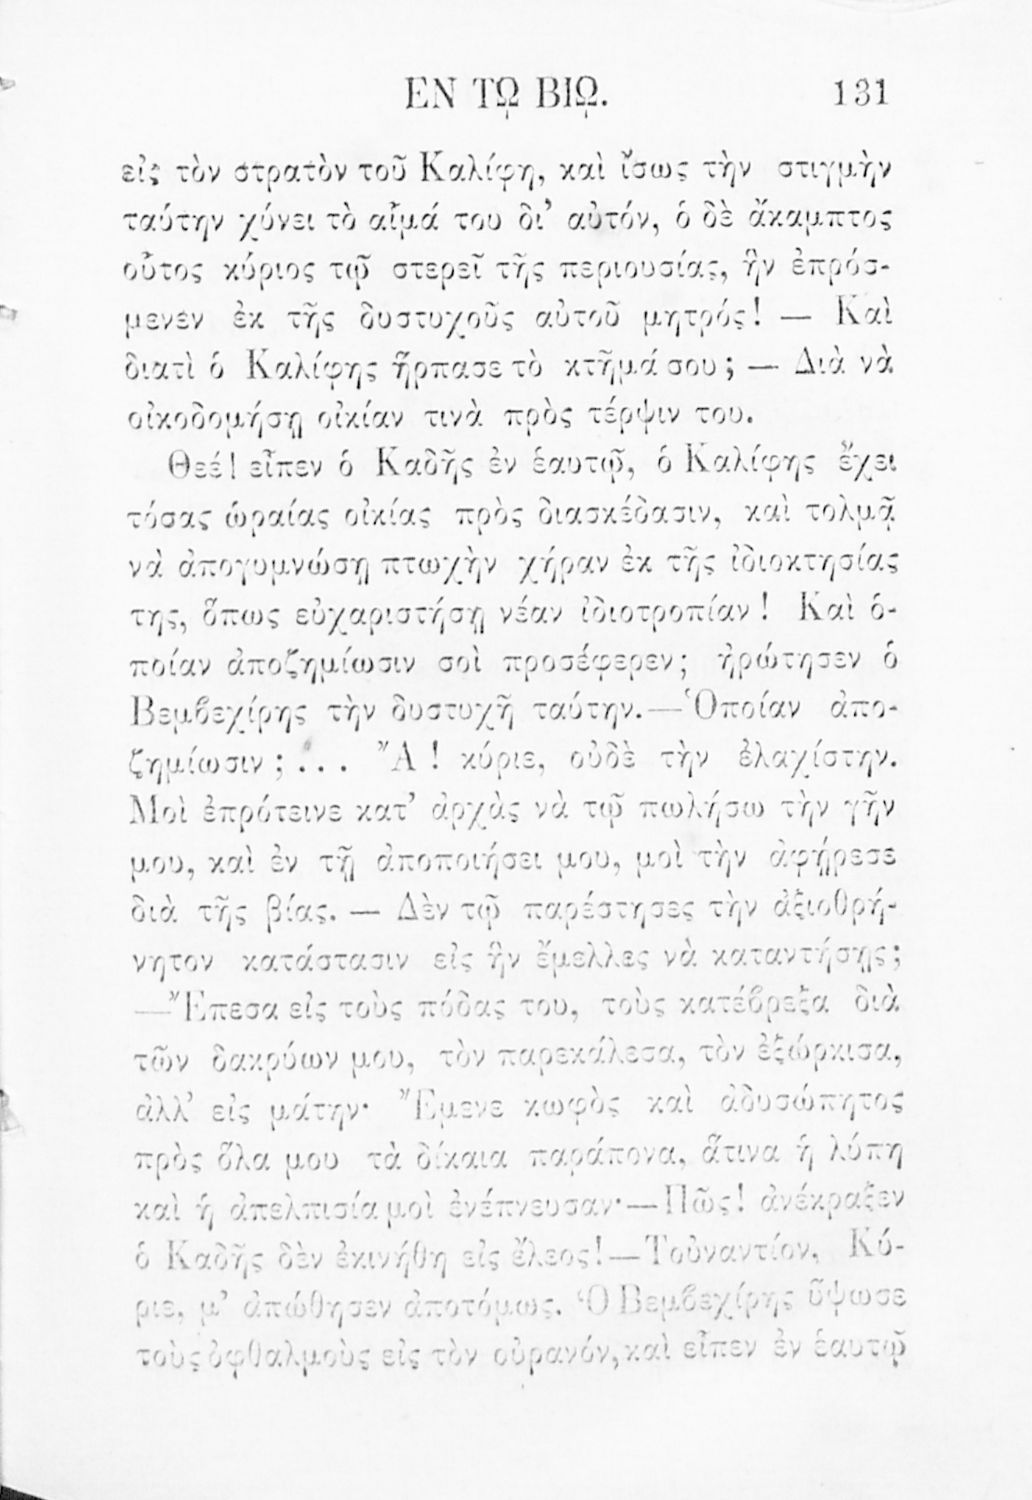 ΕΝ Τῼ ΒΙῼ. 131
εἰς τὸν στρατὸν τοῦ Καλίφη, καὶ ἴσως τὴν στιγμὴν
ταύτην χύνει τὸ αἷμά του δι’ αὐτόν, ὁ δὲ ἄκαμπτος
οὗτος κύριος τῷ στερεῖ τῆς περιουσίας, ἣν ἐπρόσ-
μενεν ἐκ τῆς δυστυχοῦς αὐτοῦ μητρός! — Καὶ
διατὶ ὁ Καλίφης ἥρπασε τὸ κτῆμά σου; — Διὰ νὰ
οἰκοδομήσῃ οἰκίαν τινὰ πρὸς τέρψιν του.
Θεέ! εἶπεν ὁ Καδῆς ἐν ἑαυτῷ, ὁ Καλίφης ἔχει
τόσας ὡραίας οἰκίας πρὸς διασκέδασιν, καὶ τολμᾷ
νὰ ἀπογυμνώσῃ πτωχὴν χήραν ἐκ τῆς ἰδιοκτησίας
της, ὅπως εὐχαριστήσῃ νέαν ἰδιοτροπίαν! Καὶ ὁ-
ποίαν ἀποζημίωσιν σοὶ προσέφερεν; ἠρώτησεν ὁ
Βεμβεχίρης τὴν δυστυχῆ ταύτην.—Ὁποίαν ἀπο-
ζημίωσιν; ... Ἂ! κύριε, οὐδὲ τὴν ἐλαχίστην.
Μοὶ ἐπρότεινε κατ’ ἀρχὰς νὰ τῷ πωλήσω τὴν γῆν
μου, καὶ ἐν τῇ ἀποποιήσει μου, μοὶ τὴν ἀφῄρεσε
διὰ τῆς βίας. — Δὲν τῷ παρέστησες τὴν ἀξιοθρή-
νητον κατάστασιν εἰς ἣν ἔμελλες νὰ καταντήσῃς;
—Ἔπεσα εἰς τοὺς πόδας του, τοὺς κατέβρεξα διὰ
τῶν δακρύων μου, τὸν παρεκάλεσα, τὸν ἐξώρκισα,
ἀλλ’ εἰς μάτην· Ἔμενε κωφὸς καὶ ἀδυσώπητος
πρὸς ὅλα μου τὰ δίκαια παράπονα, ἅτινα ἡ λύπη
καὶ ἡ ἀπελπισία μοὶ ἐνέπνευσαν·—Πῶς! ἀνέκραξεν
ὁ Καδῆς δὲν ἐκινήθη εἰς ἔλεος!—Τοὐναντίον, Κύ-
ριε, μ’ ἀπώθησεν ἀποτόμως. Ὁ Βεμβεχίρης ὕψωσε
τοὺς ὀφθαλμοὺς εἰς τὸν οὐρανόν, καὶ εἶπεν ἐν ἑαυτῷ